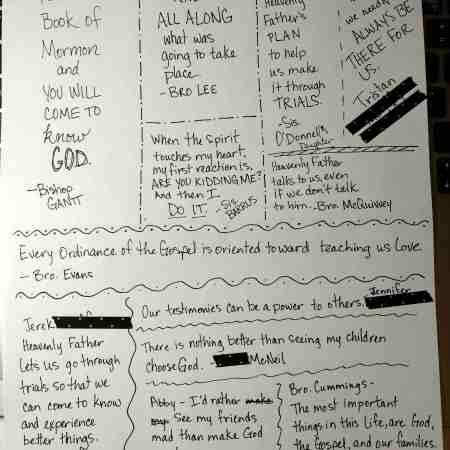 Book of
Mormon
and
YOU WILL
COME TO
know
GOD.
-Bishop
GANTT
ALL ALONG
what was
going to take
place.
-BRO LEE
Heavenly
Father's
PLAN
to help
us make
it through
TRIALS.
-Sis.
O'Donnell's
Daughter
we need
ALWAYS BE
THERE FOR
US.
Tristan
When the spirit
touches my heart,
my first reaction is,
ARE YOU KIDDING ME?
And then I
DO IT. -Sis.
Heavenly Father
talks to us, even
if we don't talk
to him. -Bro. McQuivvey
Every Ordinance of the Gospel is oriented toward teaching us Love.
- Bro. Evans
Jerek
Heavenly Father
Lets us go through
trials so that we
can come to know
and experience
better things.
Our testimonies can be a power to others. Jennifer
There is nothing better than seeing my children
choose God. - McNeil
Abby - I'd rather make
say See my friends
mad than make God
Bro. Cummings -
The most important
things in this Life, are God,
the Gospel, and our families.